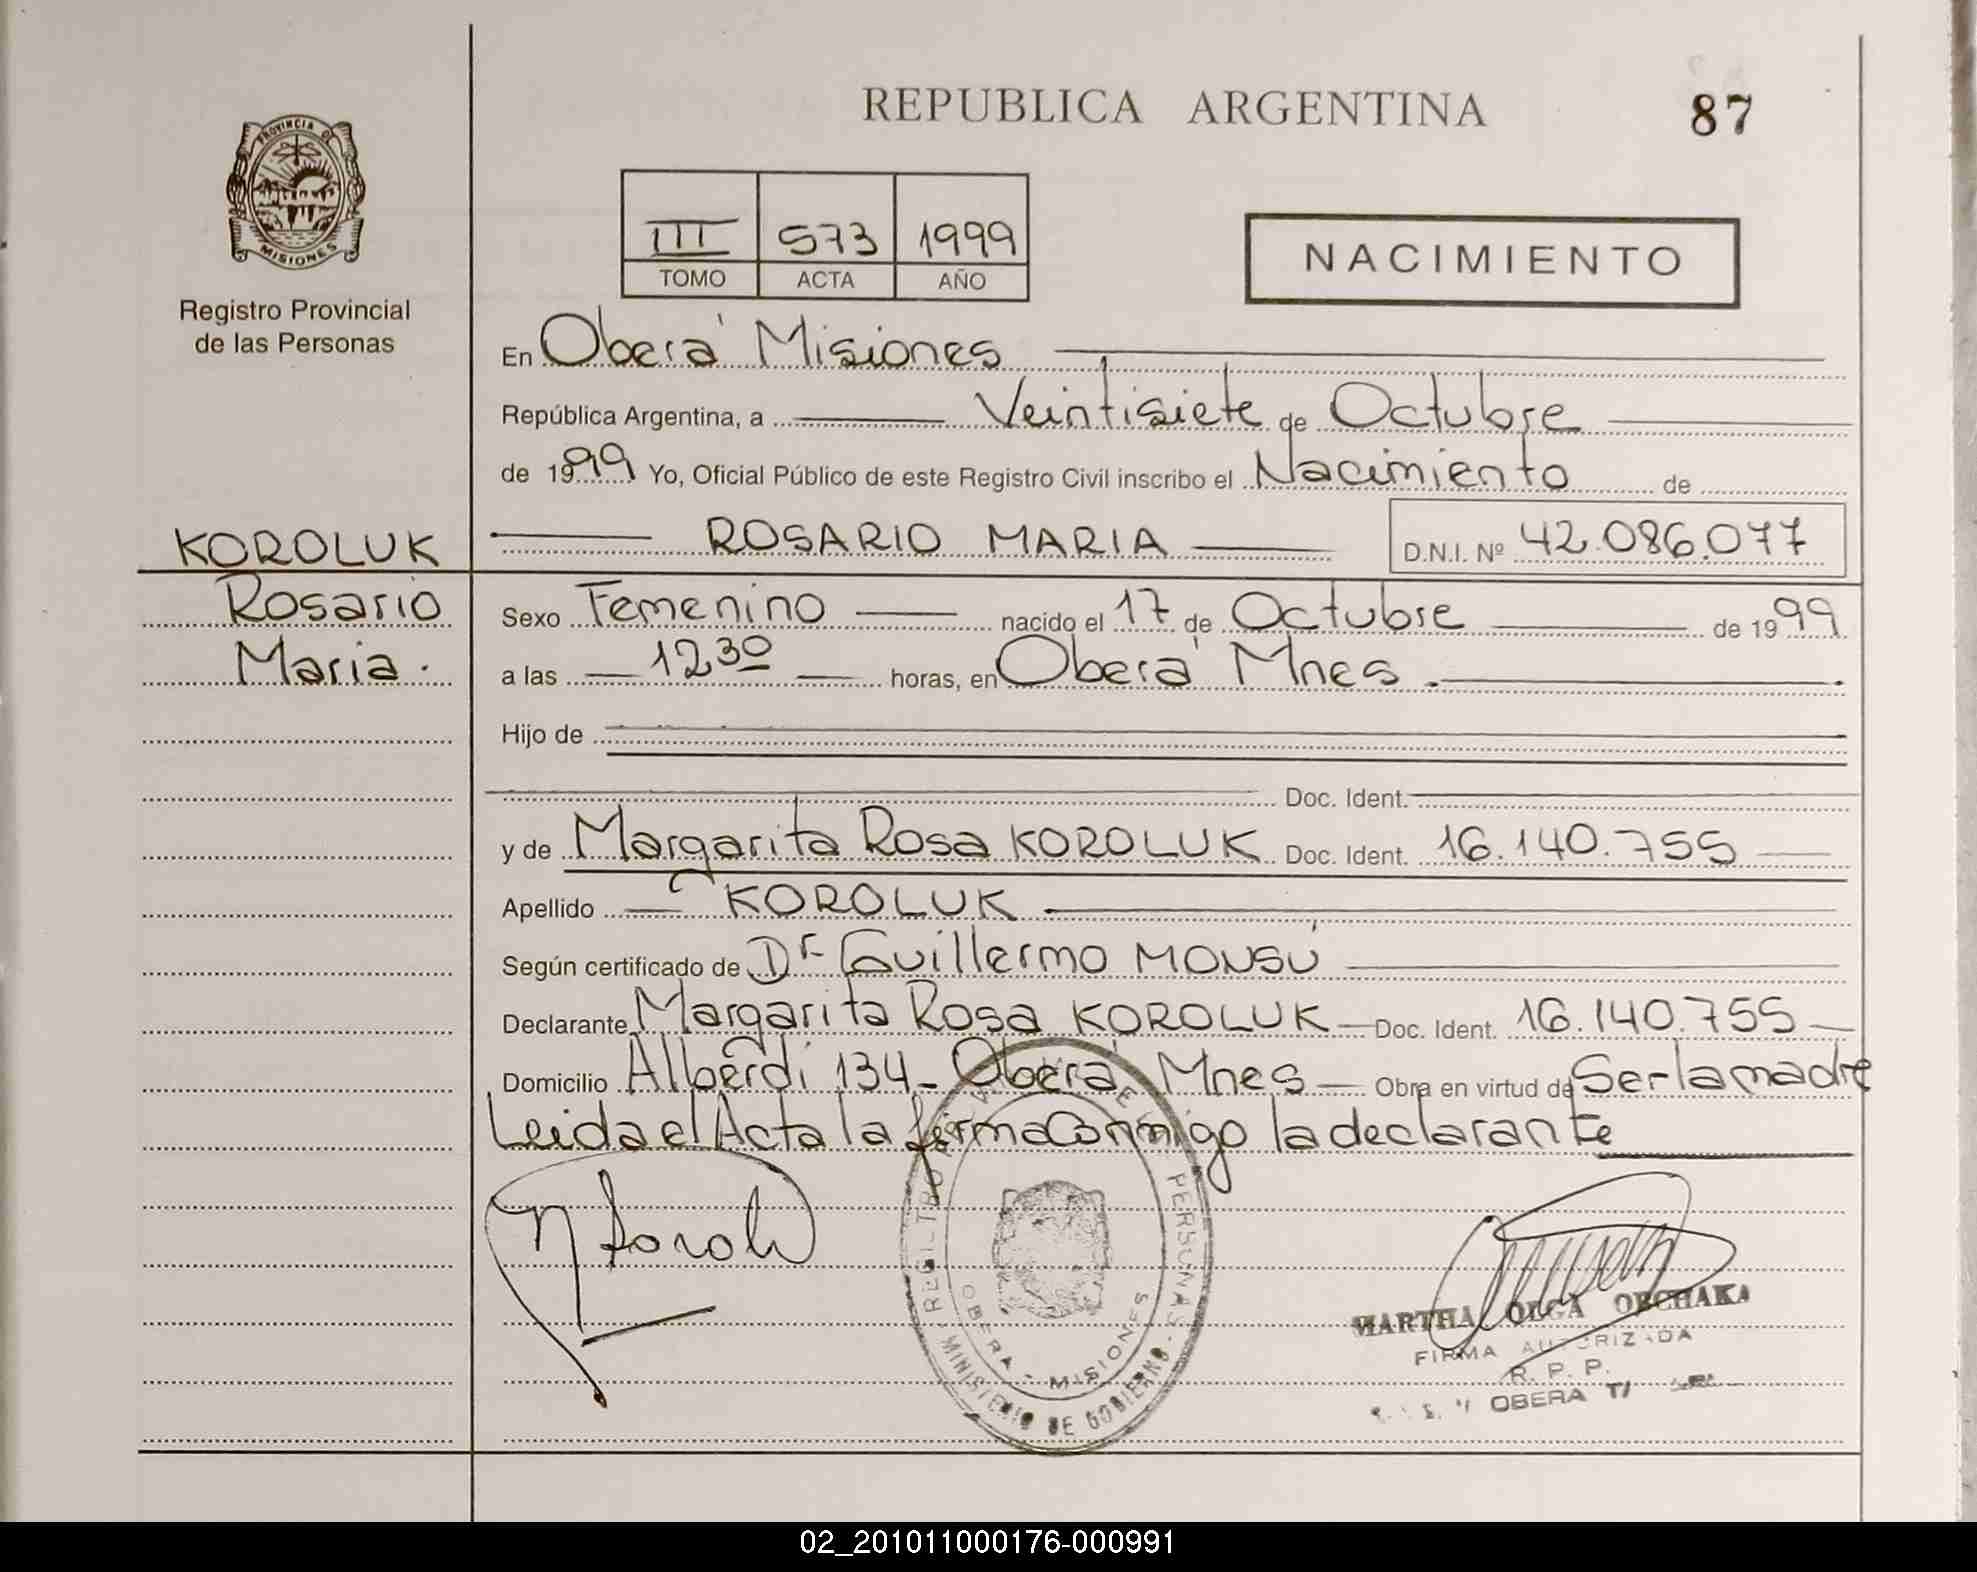 REPUBLICA ARGENTINA
87
PROVINCIA DE MISIONES
Registro Provincial
de las Personas
III 573 1999
TOMO ACTA AÑO
NACIMIENTO
En Oberá Misiones
República Argentina, a Veintisiete de Octubre
de 1999 Yo, Oficial Público de este Registro Civil inscribo el Nacimiento de
KOROLUK
Rosario
Maria.
ROSARIO MARIA D.N.I. Nº 42.086.077
Sexo Femenino nacido el 17 de Octubre de 1999
a las 12 30 horas, en Oberá Mnes.
Hijo de
Doc. Ident.
y de Margarita Rosa KOROLUK Doc. Ident. 16.140.755
Apellido KOROLUK
Según certificado de Dr Guillermo MONSÚ
Declarante Margarita Rosa KOROLUK Doc. Ident. 16.140.755
Domicilio Alberdi 134 - Oberá Mnes Obra en virtud de Ser la madre
Leida el Acta la firma Conmigo la declarante
OBERA - MISIONES
MINISTERIO DE GOBIERNO
MARTHA OLGA OBCHAKA
FIRMA AUTORIZADA
R. P. P.
OBERA
02_201011000176-000991